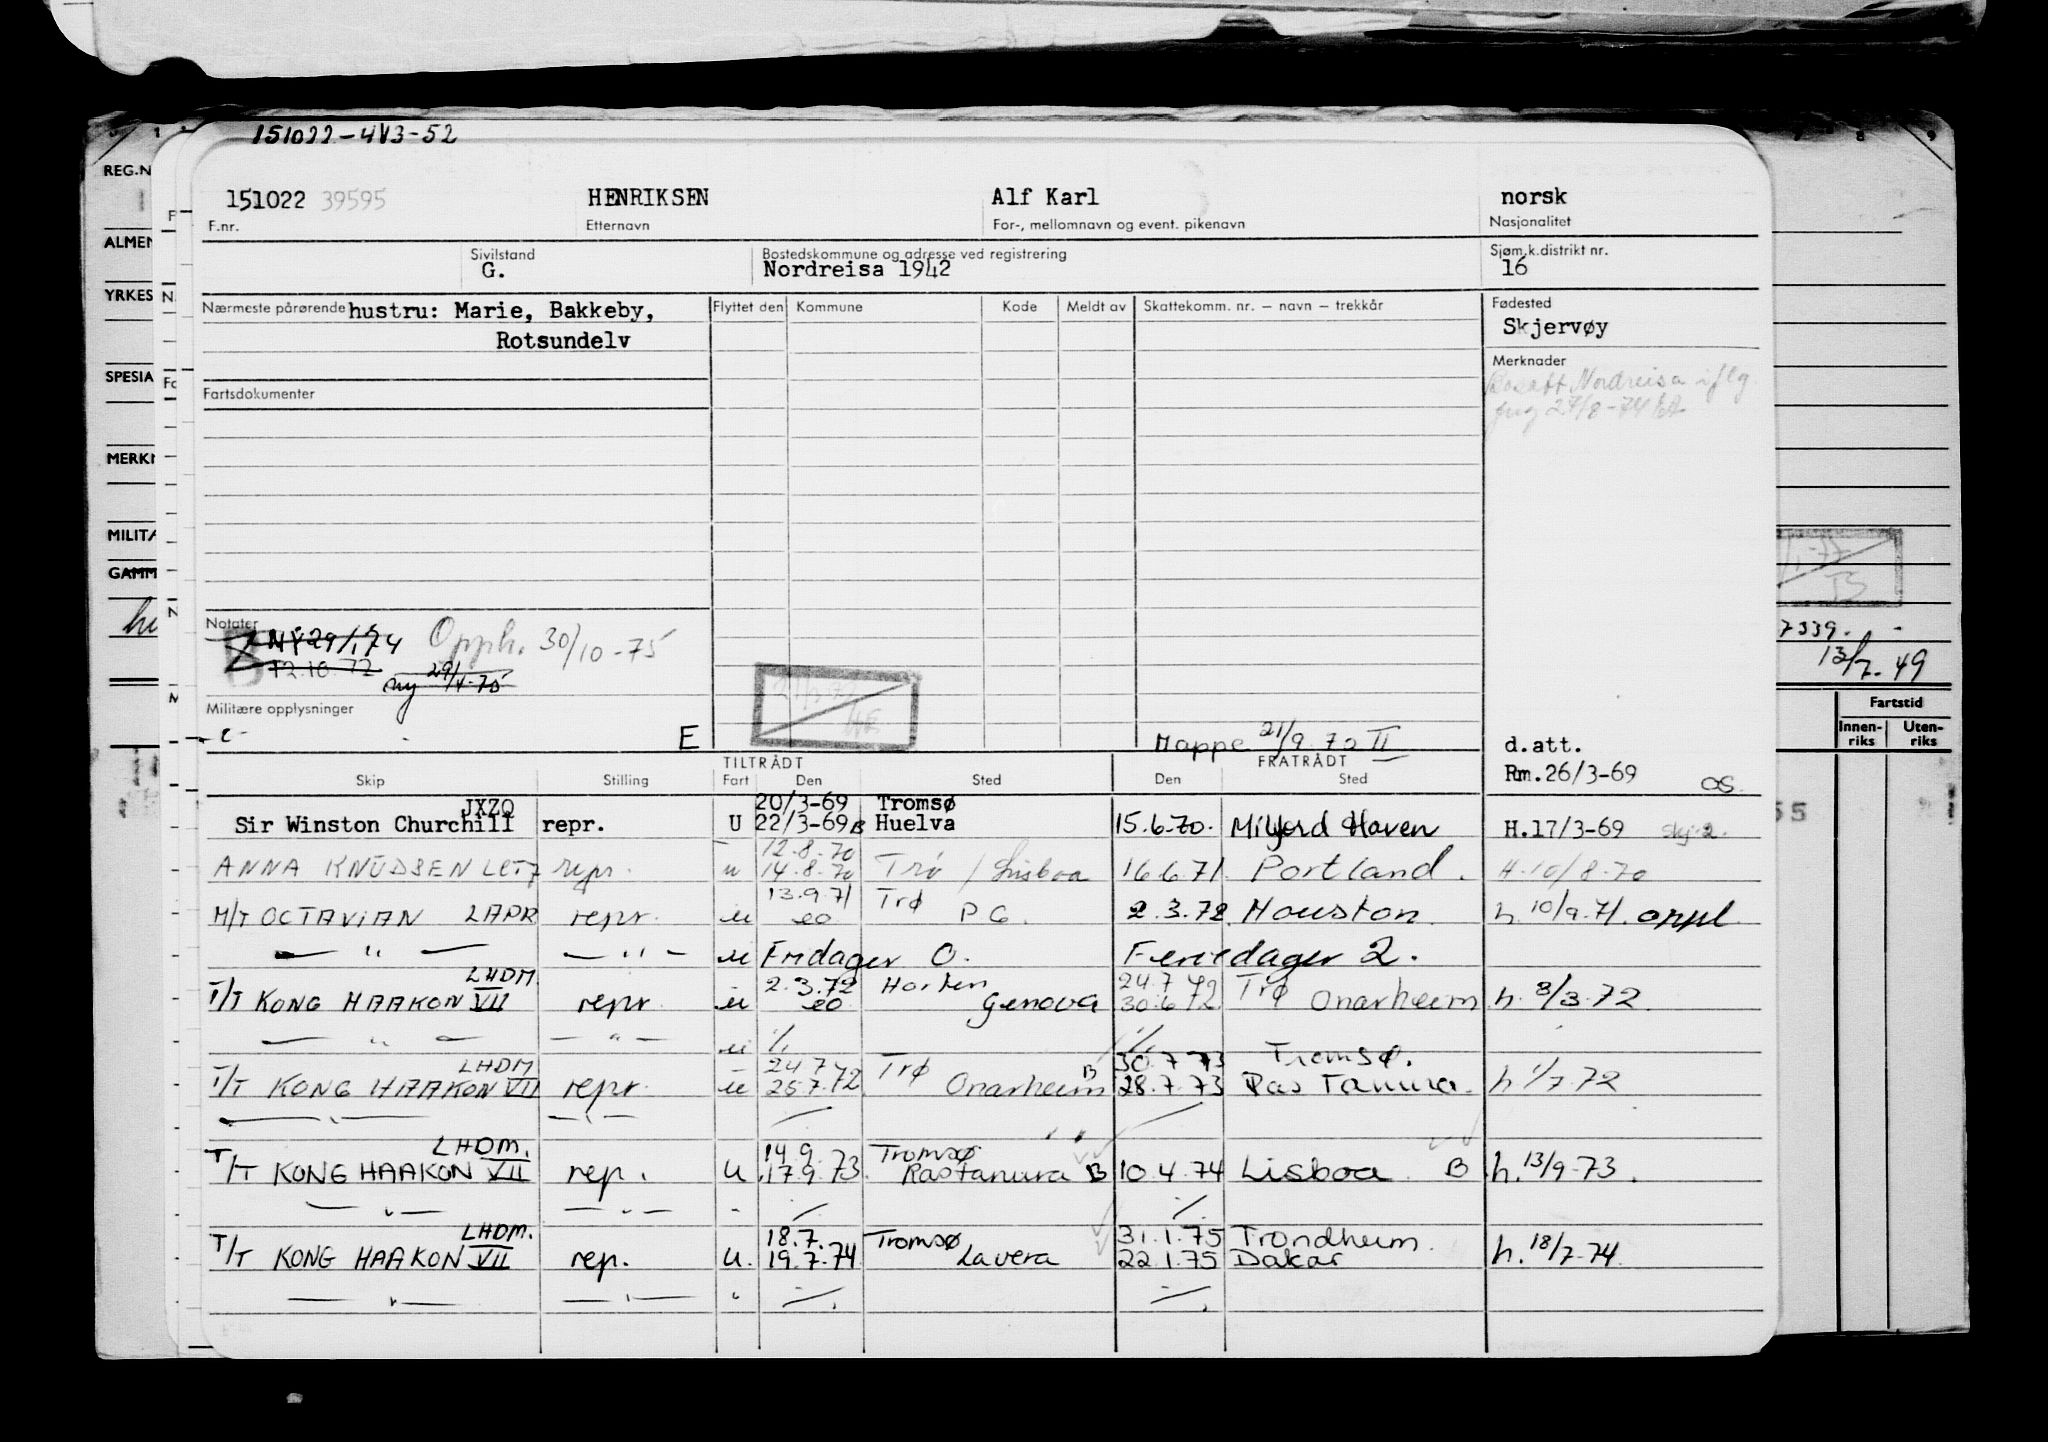 151022-4V3-52
REG.N
151022 39595 HENRIKSEN Alf Karl norsk
F.nr. Etternavn For-, mellomnavn og event. pikenavn Nasjonalitet
ALMEN
Sivilstand Bostedskommune og adresse ved registrering Sjøm.k.distrikt nr.
G. Nordreisa 1942 16
YRKES
Nærmeste pårørende hustru: Marie, Bakkeby, Flyttet den Kommune Kode Meldt av Skattekomm. nr. — navn — trekkår Fødested
Rotsundelv Skjervøy
Merknader
SPESIA
Bosatt Nordreisa iflg.
Fartsdokumenter
27/8-74
MERKN
MILITÆ
GAMM
7339.
13/7.49
Notater
NY 29/1.74 Opph. 30/10-75
12.10.72 ny 29/4-75
Militære opplysninger
E Mappe 21/9.72 II d.att.
Fartstid
Innen-riks Uten-riks
TILTRÅDT FRATRÅDT
Skip Stilling Fart Den Sted Den Sted Rm.26/3-69 OS.
JXZQ 20/3-69 Tromsø
Sir Winston Churchill repr. U 22/3-69 B Huelva 15.6.70. Milford Haven H.17/3-69
12.8.70
ANNA KNUDSEN LCTZ repr. u 14.8.70 Trø / Lisboa 16.6.71. Portland. H.10/8-70
13.9.71 Trø
M/T OCTAVIAN LAPR repr. u eo P G. 2.3.72 Houston. h. 10/9.71. oppl
— " — — " — u Fridager 0. Feriedager 2.
LHDM. 2.3.72 Horten 24.7 72 Trø
T/T KONG HAAKON VII repr. u eo Genova 30.6.72 Onarheim h. 8/3.72.
— " — — " — u ⁒ ⁒
LHDM 24.7 Trø 30.7 73 Tromsø.
T/T KONG HAAKON VII repr. u 25.7.72. Onarheim B 28.7.73 Ras Tanura. h. 1/7.72
LHDM. 14.9. Tromsø
T/T KONG HAAKON VII rep. U 17.9.73. Rastanura B 10.4.74 Lisboa. B h. 13/9-73.
— " — — " — - ⁒ ⁒
LHDM. 18.7. Tromsø 31.1.75 Trondheim.
T/T KONG HAAKON VII rep. U. 19.7.74 Lavera 22.1.75 Dakar h. 18/7-74.
— " — — " — " ⁒ ⁒